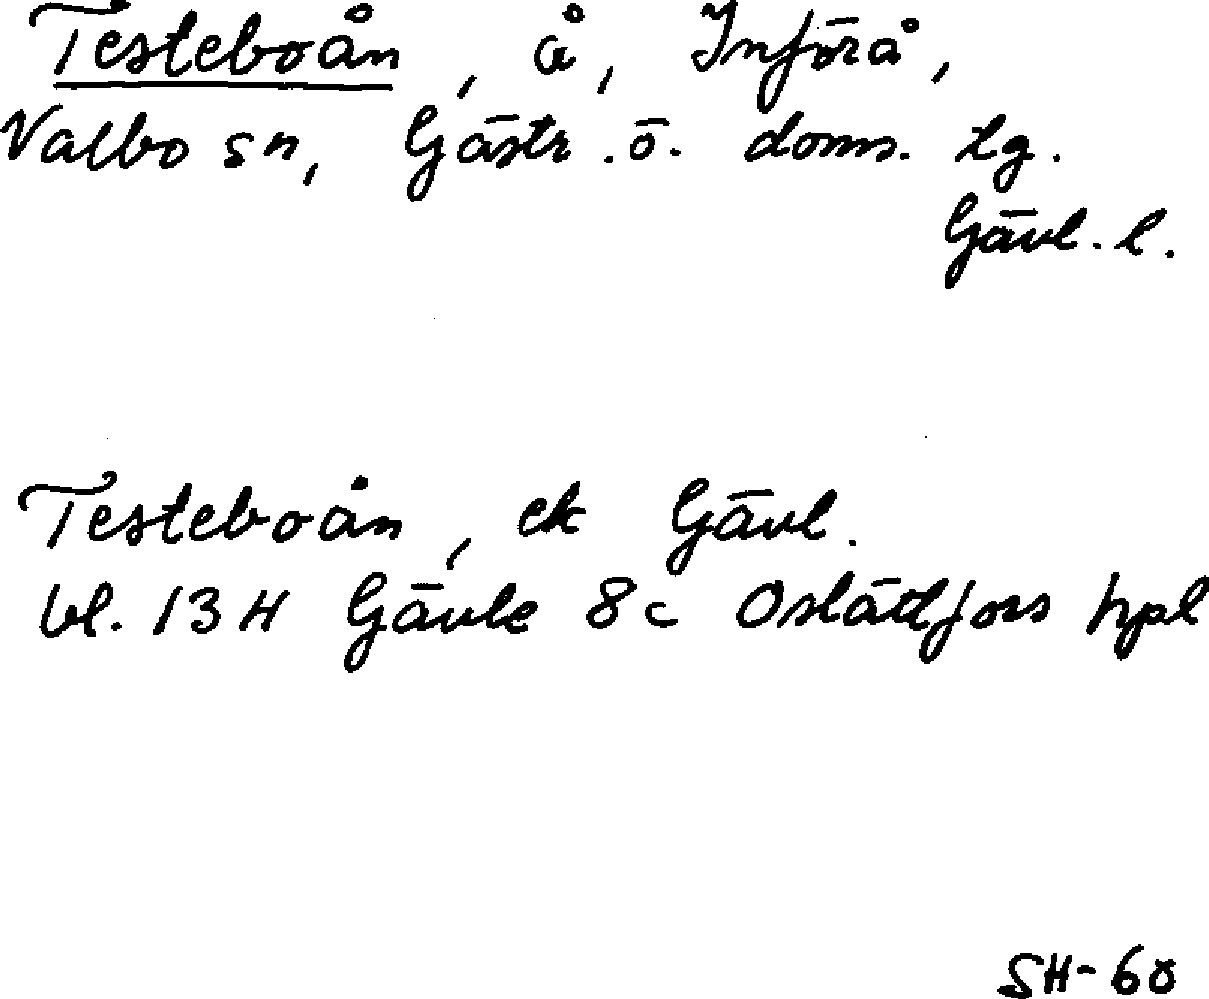 Testeboån, å, Införå,
Valbo sn, Gästr. ö. doms. tg.
Gävl. l.
Testeboån, ek Gävl.
bl. 13H Gävle 8c Oslättfors hpl
SH-60